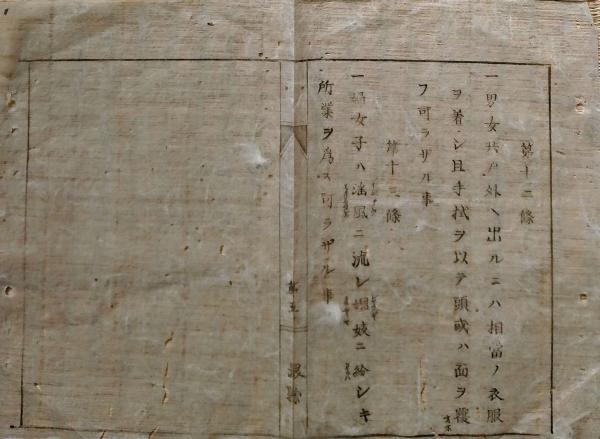 第十二條
一男女共戸外ヘ出ルニハ相當ノ衣服
ヲ着シ且手拭ヲ以テ頭或ハ面ヲ覆
フ可ラザル事
第十三條
一婦女子ハ淫風ニ流レ娼妓ニ給シキ
所業ヲ爲ス可ラザル事